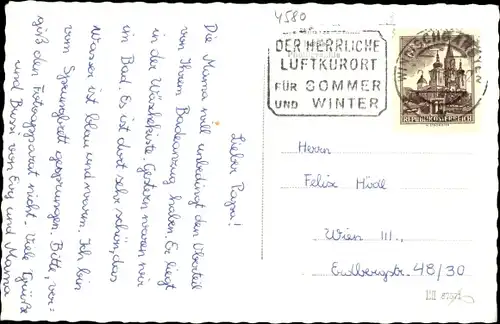 4580
DER HERRLICHE
LUFTKURORT
FÜR SOMMER
UND WINTER
REPUBLIK ÖSTERREICH
Lieber Papa!
Die Mama will unbedingt den Oberteil
von Ihrem Badeanzug haben. Er liegt
in der Wäschekiste. Gestern waren wir
im Bad. Es ist dort sehr schön, das
Wasser ist blau und warm. Ich bin
vom Sprungbrett gesprungen. Bitte, ver-
giß den Fotoapparat nicht. Viele Grüße
und Bussi von Evi und Mama
Herrn
Felix Hödl
Wien III.,
Erdbergstr. 48/30